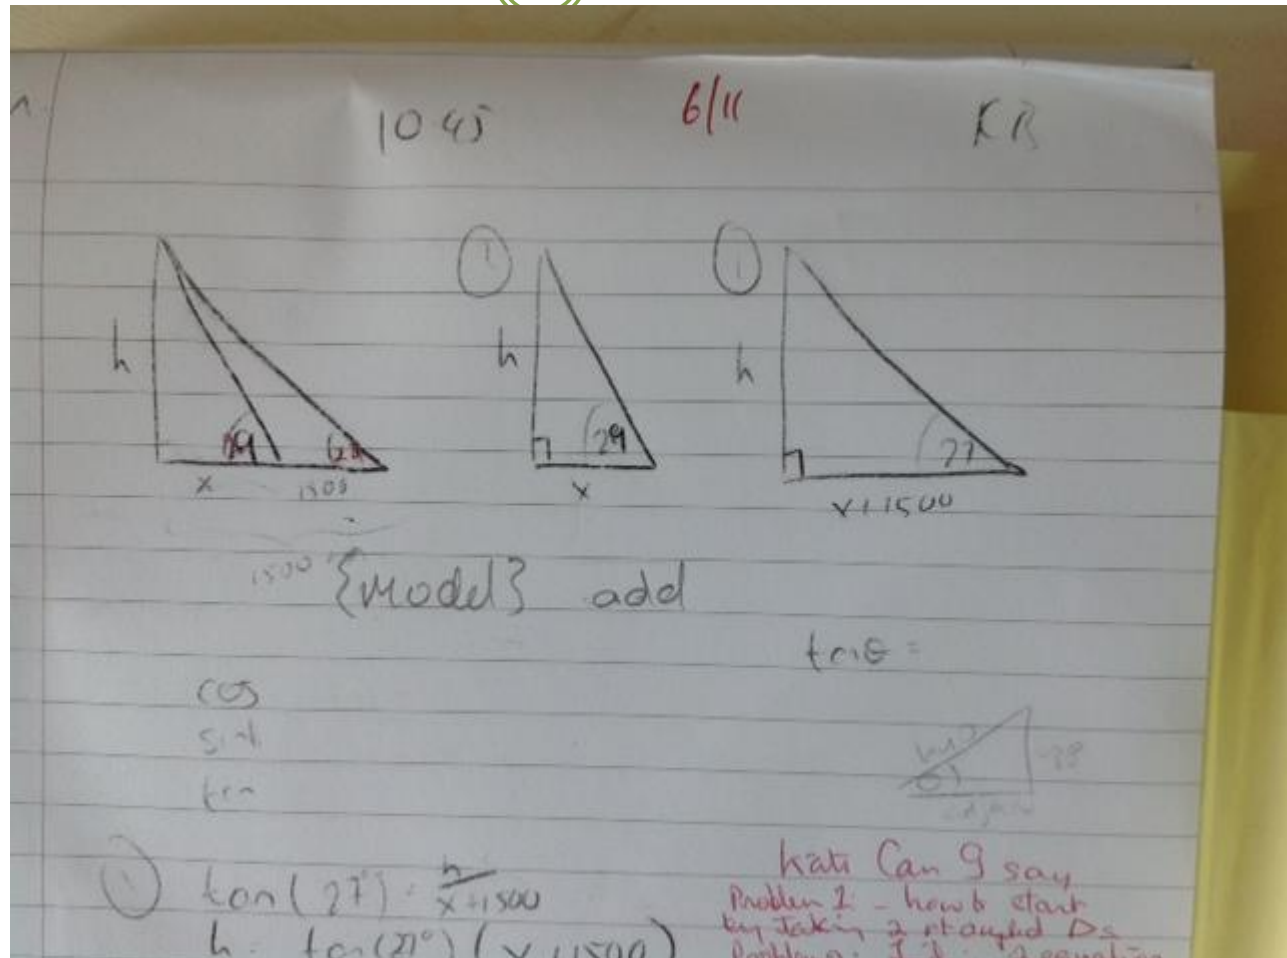 1045 6/11 KB
h h h
29 29 27
x 1500 x x+1500
1500
{Model} add
tanθ =
cos
sin
tan
hyp
θ
① tan(27°) = h/x+1500
h = tan(27°)(x+1500)
Kate Can I say
Problem 1 - how to start
by Taking 2 rt angled Δs